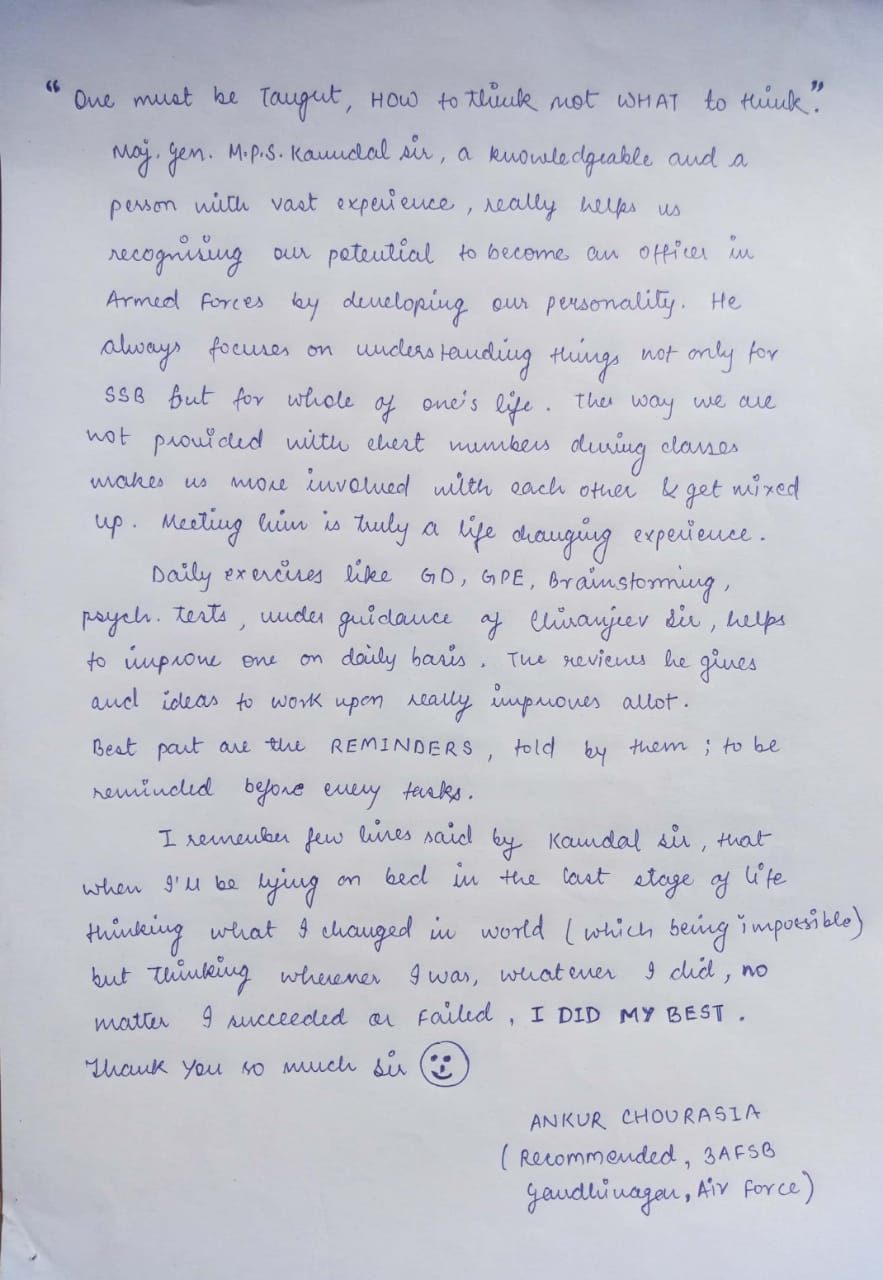 “ One must be Taught, HOW to think not WHAT to think.”
Maj. Gen. M.P.S. Kamdal sir, a knowledgeable and a
person with vast experience, really helps us
recognising our potential to become an officer in
Armed Forces by developing our personality. He
always focuses on understanding things not only for
SSB but for whole of one's life. The way we are
not provided with chest numbers during classes
makes us more involved with each other & get mixed
up. Meeting him is truly a life changing experience.
Daily exercises like GD, GPE, Brainstorming,
psych. tests, under guidance of Chiranjeev Sir, helps
to improve one on daily basis. The reviews he gives
and ideas to work upon really improves allot.
Best part are the REMINDERS, told by them ; to be
reminded before every tasks.
I remember few lines said by Kamdal sir, that
when I'll be lying on bed in the last stage of life
thinking what I changed in world (which being impossible)
but thinking wherever I was, whatever I did, no
matter I succeeded or failed, I DID MY BEST.
Thank you so much sir
ANKUR CHOURASIA
(Recommended, 3AFSB
Gandhinagar, Air Force)